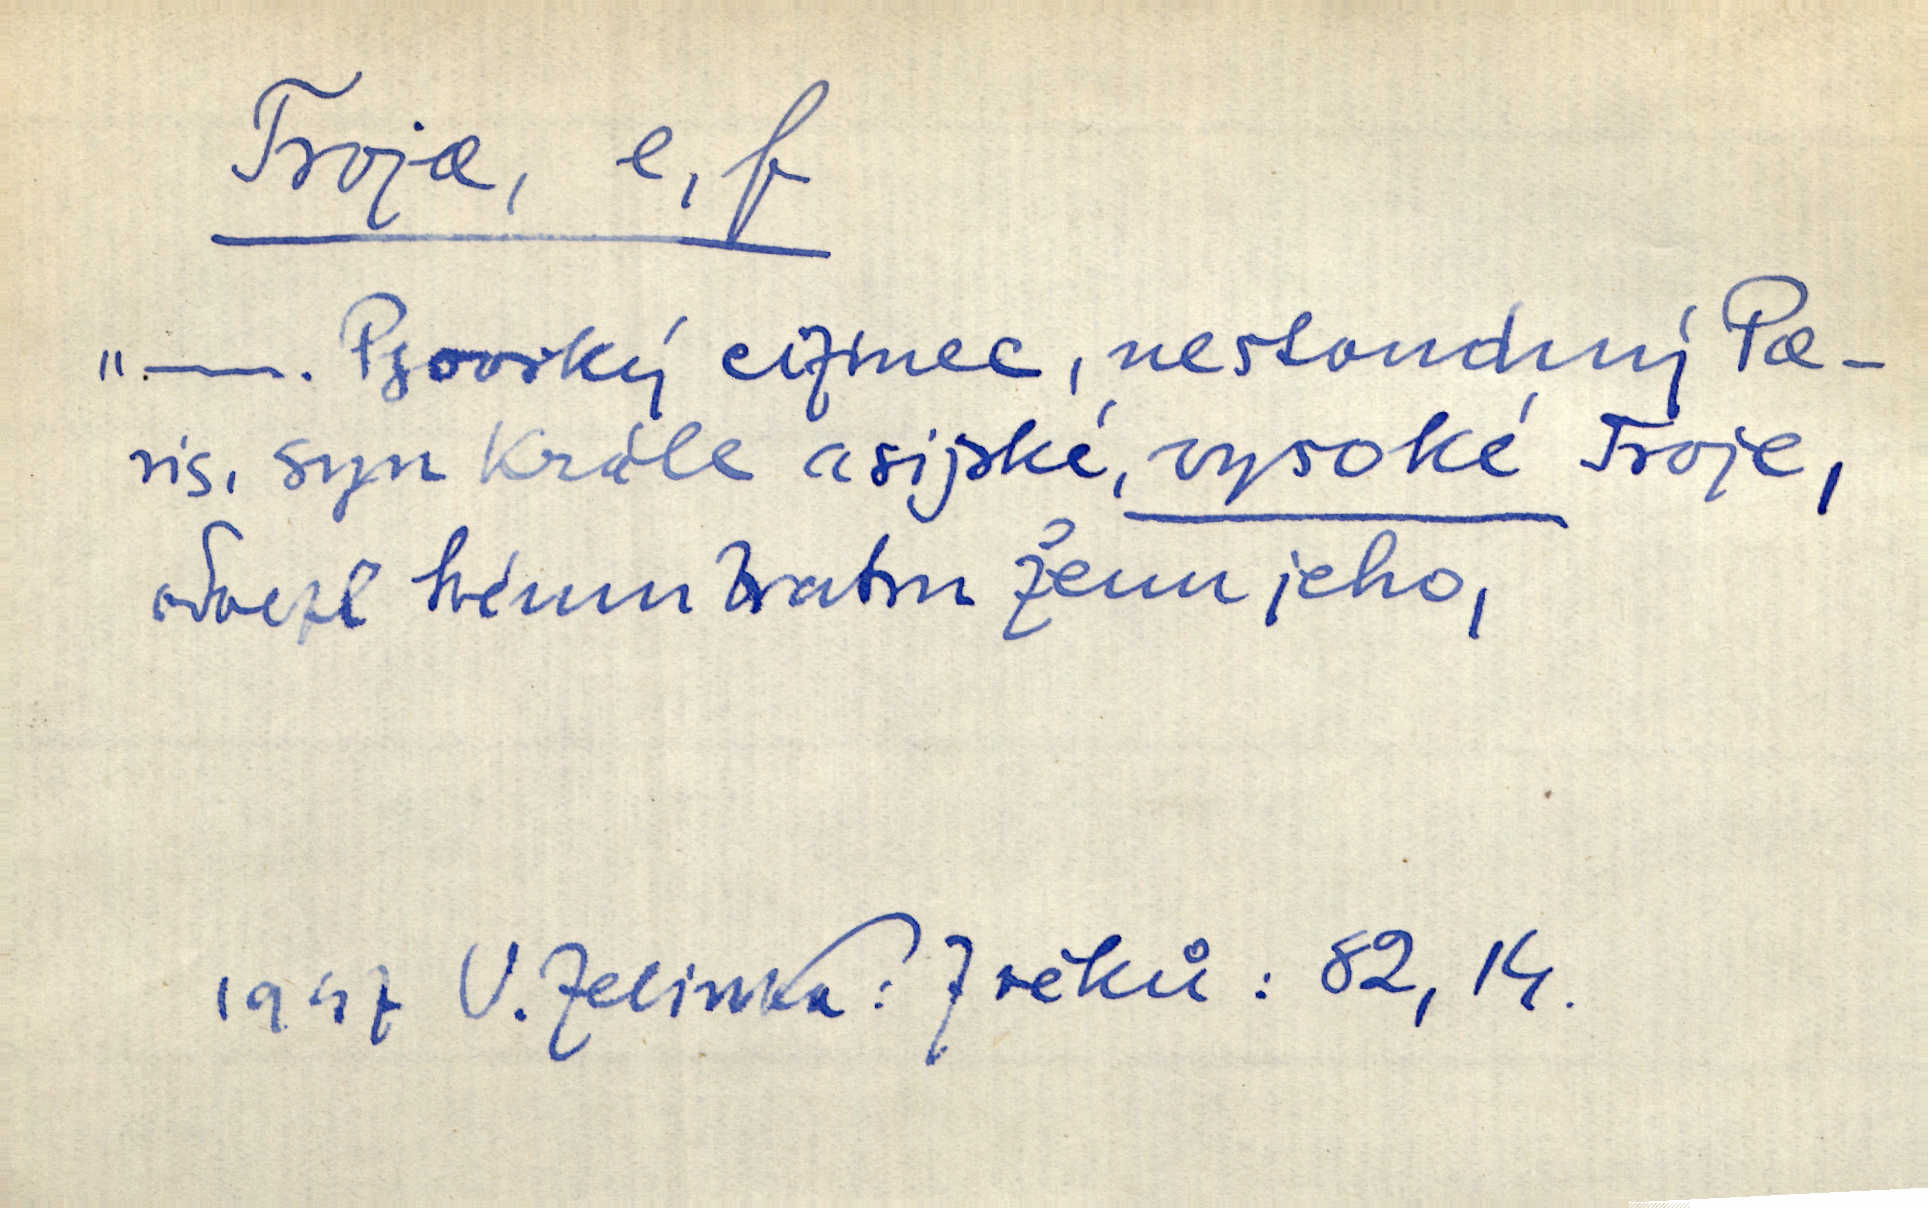 Troja, e, f
"—. Psovský cizinec, nestoudný Pa-
ris, syn krále asijské, vysoké Troje,
odvezl tvému bratru ženu jeho,
1947 V. Zelinka: Z věků: 82, 14.